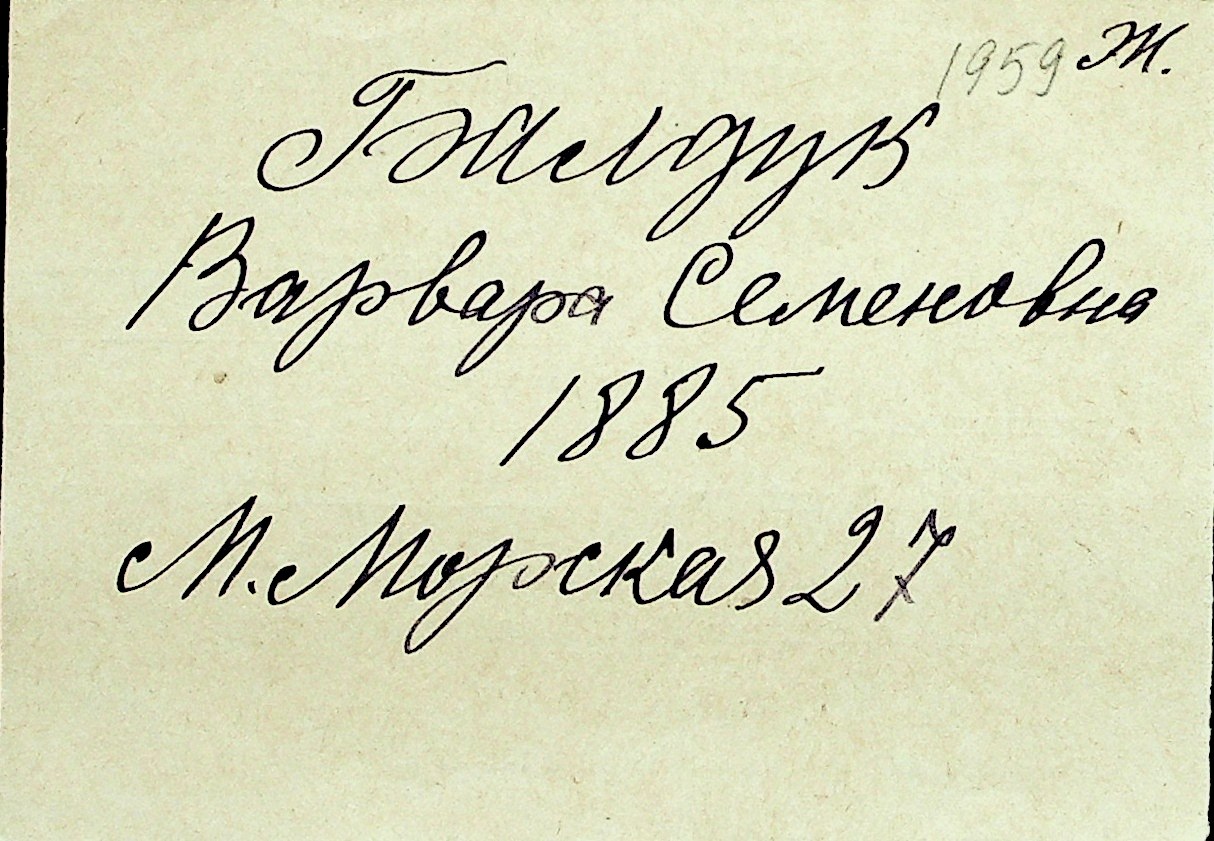 1959 Ж.
Гжелдук
Варвара Семеновна
1885
М. Морская 27